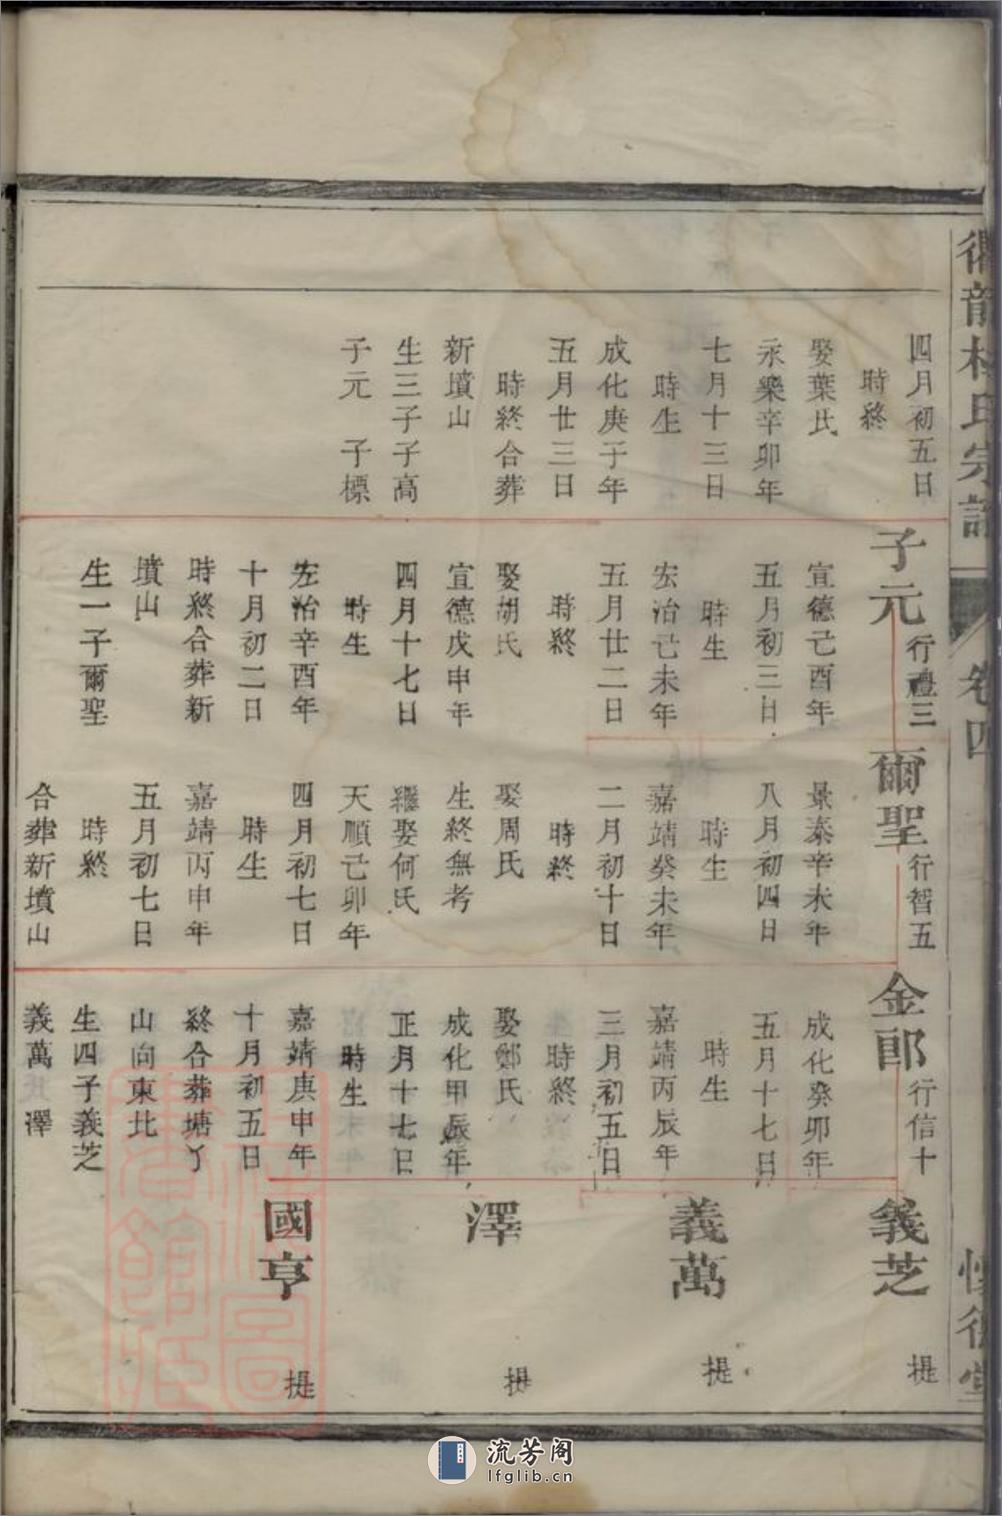 四月初五日
時終
娶葉氏
永樂辛卯年
七月十三日
時生
成化庚子年
五月廿三日
時終合葬
新墳山
生三子子高
子元 子標
子元
行禮三
宣德己酉年
五月初三日
時生
宏治己未年
五月廿二日
時終
娶胡氏
宣德戊申年
四月十七日
時生
宏治辛酉年
十月初二日
時終合葬新
墳山
生一子爾聖
爾聖
行智五
景泰辛未年
八月初四日
時生
嘉靖癸未年
二月初十日
時終
娶周氏
生終無考
繼娶何氏
天順己卯年
四月初七日
時生
嘉靖丙申年
五月初七日
時終
合葬新墳山
金郎
行信十
成化癸卯年
五月十七日
時生
嘉靖丙辰年
三月初五日
時終
娶鄭氏
成化甲辰年
正月十七日
時生
嘉靖庚申年
十月初五日
終合葬塘丫
山向東北
生四子義芝
義萬 澤
義芝
提
義萬
提
澤
提
國亨
提
卷四
流芳阁
lfglib.cn